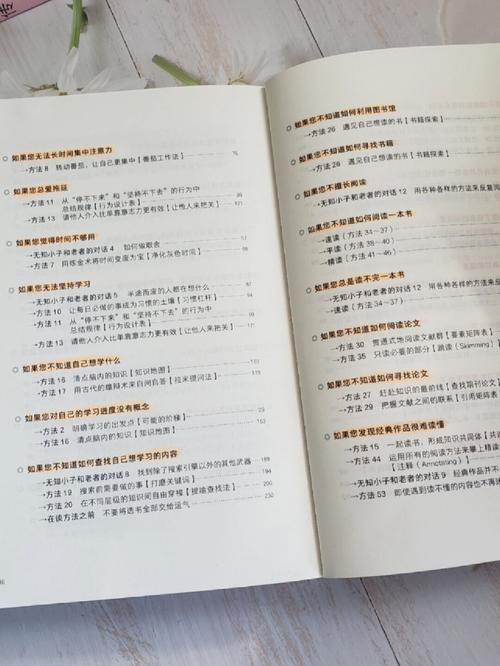 如果您无法长时间集中注意力
→方法 8 转动番茄，让自己更集中【番茄工作法】
如果您总爱拖延
→方法 11 从“停不下来”和“坚持不下去”的行为中
总结规律【行为设计表】
→方法 13 请他人介入比单靠意志力更有效【让他人来把关】
如果您觉得时间不够用
→无知小子和老者的对话 4 如何做取舍
→方法 7 用炼金术将时间变废为宝【净化灰色时间】
如果您无法坚持学习
→无知小子和老者的对话 5 半途而废的人都在想什么
→方法 10 让每日必做的事成为习惯的土壤【习惯杠杆】
→方法 11 从“停不下来”和“坚持不下去”的行为中
总结规律【行为设计表】
→方法 13 请他人介入比单靠意志力更有效【让他人来把关】
如果您不知道自己想学什么
→方法 16 清点脑内的知识【知识地图】
→方法 17 用古代的雄辩术来自问自答【拉米提问法】
如果您对自己的学习进度没有概念
→方法 2 明确学习的出发点【可能的阶梯】 23
→方法 16 清点脑内的知识【知识地图】
如果您不知道如何查找自己想学习的内容
→无知小子和老者的对话 8 找到除了搜索引擎以外的其他武器 189
→方法 19 搜索前需要做的事【打磨关键词】 194
→方法 20 在不同层级的知识间自由穿梭【提喻查找法】 200
→在谈方法之前 不要将选书全部交给运气 230
如果您不知道如何利用图书馆
→方法 26 遇见自己想读的书【书籍探索】
如果您不知道如何寻找书籍
→方法 26 遇见自己想读的书【书籍探索】
如果您不擅长阅读
→无知小子和老者的对话 12 用各种各样的方法来反复阅
如果您不知道如何阅读一本书
→速读（方法 34~37）
→平读（方法 38~40）
→精读（方法 41~
如果您总是读不完一本书
→无知小子和老者的对话 12 用各种各样的方法来反
→速读（方法 34~37）
如果您不知道如何阅读论文
→方法 30 贯通式地阅读文献群【要素矩阵表】
→方法 35 只读必要的部分【跳读（Skimming）】
如果您不知道如何寻找论文
→方法 27 赶赴知识的最前线【查找期刊论文】
→方法 29 把握文献之间的联系【引用矩阵表】
如果您发现经典作品很难读懂
→方法 15 一起读书，形成知识共同体【共读
→方法 44 运用所有的阅读方法来攀上精读
【注释（Annotating）】
→无知小子和老者的对话 9 经典作品并非
→方法 53 即使遇到读不懂的内容也不再迷